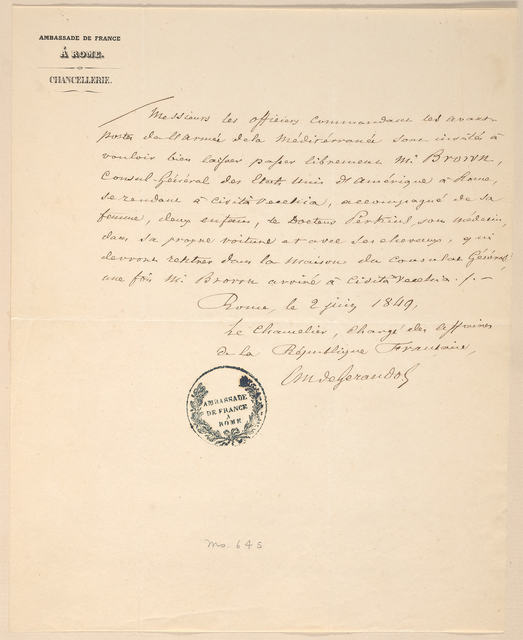 AMBASSADE DE FRANCE
À ROME.
CHANCELLERIE.
Messieurs les officiers commandant les avant-
postes de l'armée de la Méditérranée sont invités à
vouloir bien laisser passer librement Mr. Brown,
Consul-Général des Etats Unis d'Amérique à Rome,
se rendant à Civita Vecchia, accompagné de sa
femme, deux enfans, le Docteur son médecin,
dans sa propre voiture et avec ses chevaux, qui
devront rentrer dans la maison du Consulat Général,
une fois Mr. Brown arrivé à Civita Vecchia ./.—
Rome, le 2 juin 1849,
Le Chancelier, Chargé des affaires
de la République Française,
AMBASSADE
DE FRANCE
A
ROME
Ms. 645